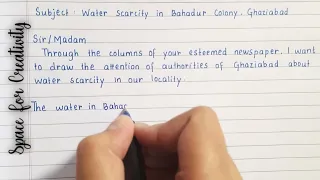 Subject : Water Scarcity in Bahadur Colony, Ghaziabad
Sir/Madam
Through the columns of your estormed newspaper, I want
to draw the attention of authorities of Ghaziabad about
water scarcity in our locality.
The water in Bahad
Space for Creativity